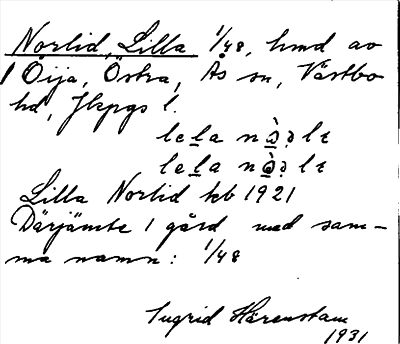 Norlid, Lilla 1/48, hmd av
1 Öija, Östra, Ås sn, Västbo
hd, Jkpgs l.
Lilla Norlid kb 1921
Därjämte 1 gård med sam-
ma namn: 1/48
Ingrid Härenstam
1931